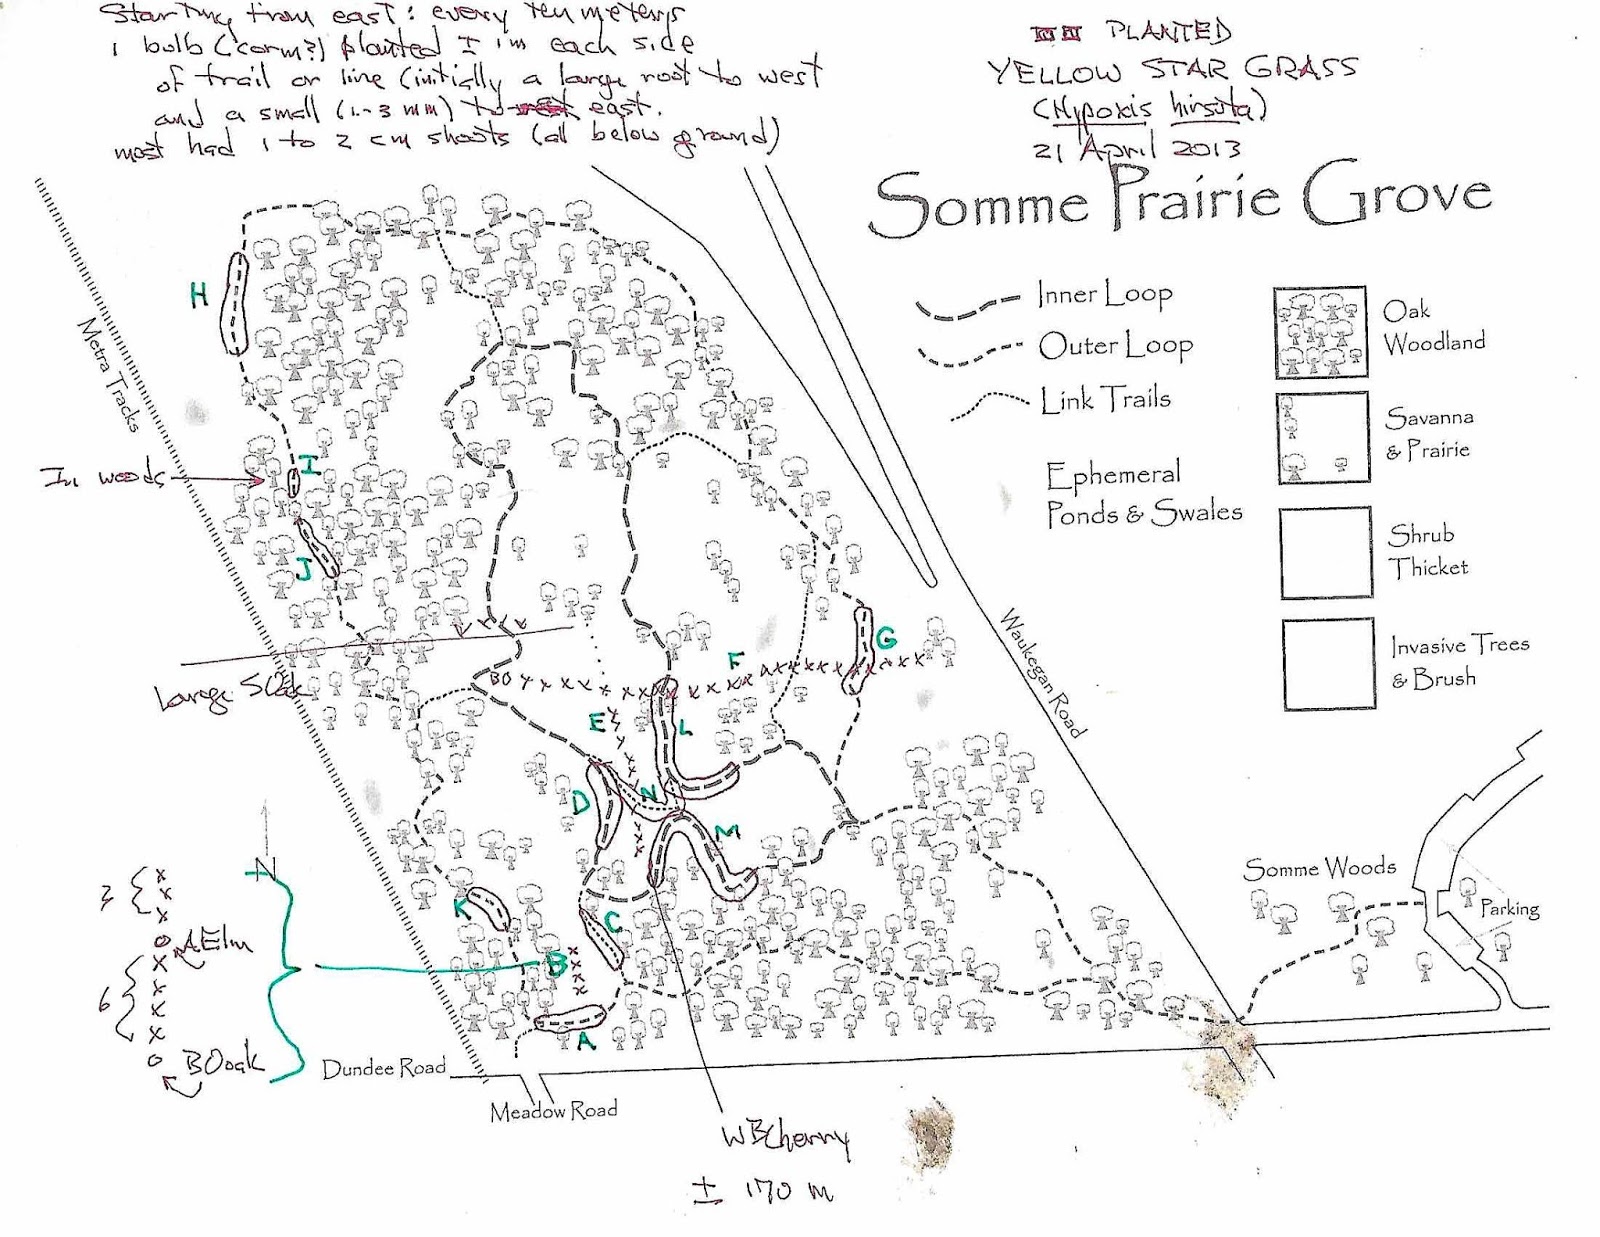 Starting from east: every ten meters
1 bulb (corm?) planted 1 m each side
of trail or line (initially a large root to west
and a small (1-3 mm) to east.
most had 1 to 2 cm shoots (all below ground)
PLANTED
YELLOW STAR GRASS
(Hypoxis hirsuta)
21 April 2013
Somme Prairie Grove
Inner Loop
Outer Loop
Link Trails
Ephemeral
Ponds & Swales
Oak
Woodland
Savanna
& Prairie
Shrub
Thicket
Invasive Trees
& Brush
H
Metra Tracks
In woods
I
J
Large
BO
F
G
E
L
Waukegan Road
D
N
M
K
C
B
A
N
3
AElm
6
BOak
Dundee Road
Meadow Road
WBCherry
± 170 m
Somme Woods
Parking